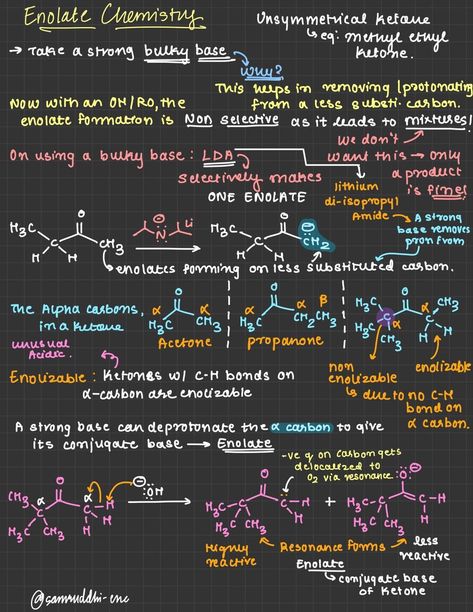 Enolate Chemistry
Unsymmetrical ketone
↳ eg: methyl ethyl
ketone.
→ Take a strong bulky base
why?
This helps in removing/protonating
from a less substi. carbon.
Now with an OH/RO, the
enolate formation is Non selective as it leads to mixtures!
we don't
want this → only
a product
is fine!
On using a bulky base: LDA
selectively makes
ONE ENOLATE
lithium
di-isopropyl
Amide → A strong
base removes
pron from
H₃C O CH₃ H H
⊖ N Li
H₃C O ⊖ CH₂ H H
enolates forming on less substituted carbon.
The Alpha carbons,
in a ketone
O α α H₃C CH₃
Acetone
O α α β H₃C CH₂CH₃
propanone
H₃C O CH₃ C α α C H₃C CH₃ H H
unusual
Acidic.
Enolizable: Ketones w/ C-H bonds on
α-carbon are enolizable
non
enolizable
enolizable
↳ due to no C-H
bond on
α carbon.
A strong base can deprotonate the α carbon to give
its conjugate base → Enolate
-ve q on carbon gets
delocalized to
O₂ via resonance.
CH₃ α O α H C C H₃C CH₃ H H
⊖ :OH
H₃C O C C-H H₃C CH₃ H
+
H₃C :O: ⊖ C C-H H₃C CH₃ H
Highly
reactive
Resonance forms
less
reactive
Enolate
↳ conjugate base
of Ketone